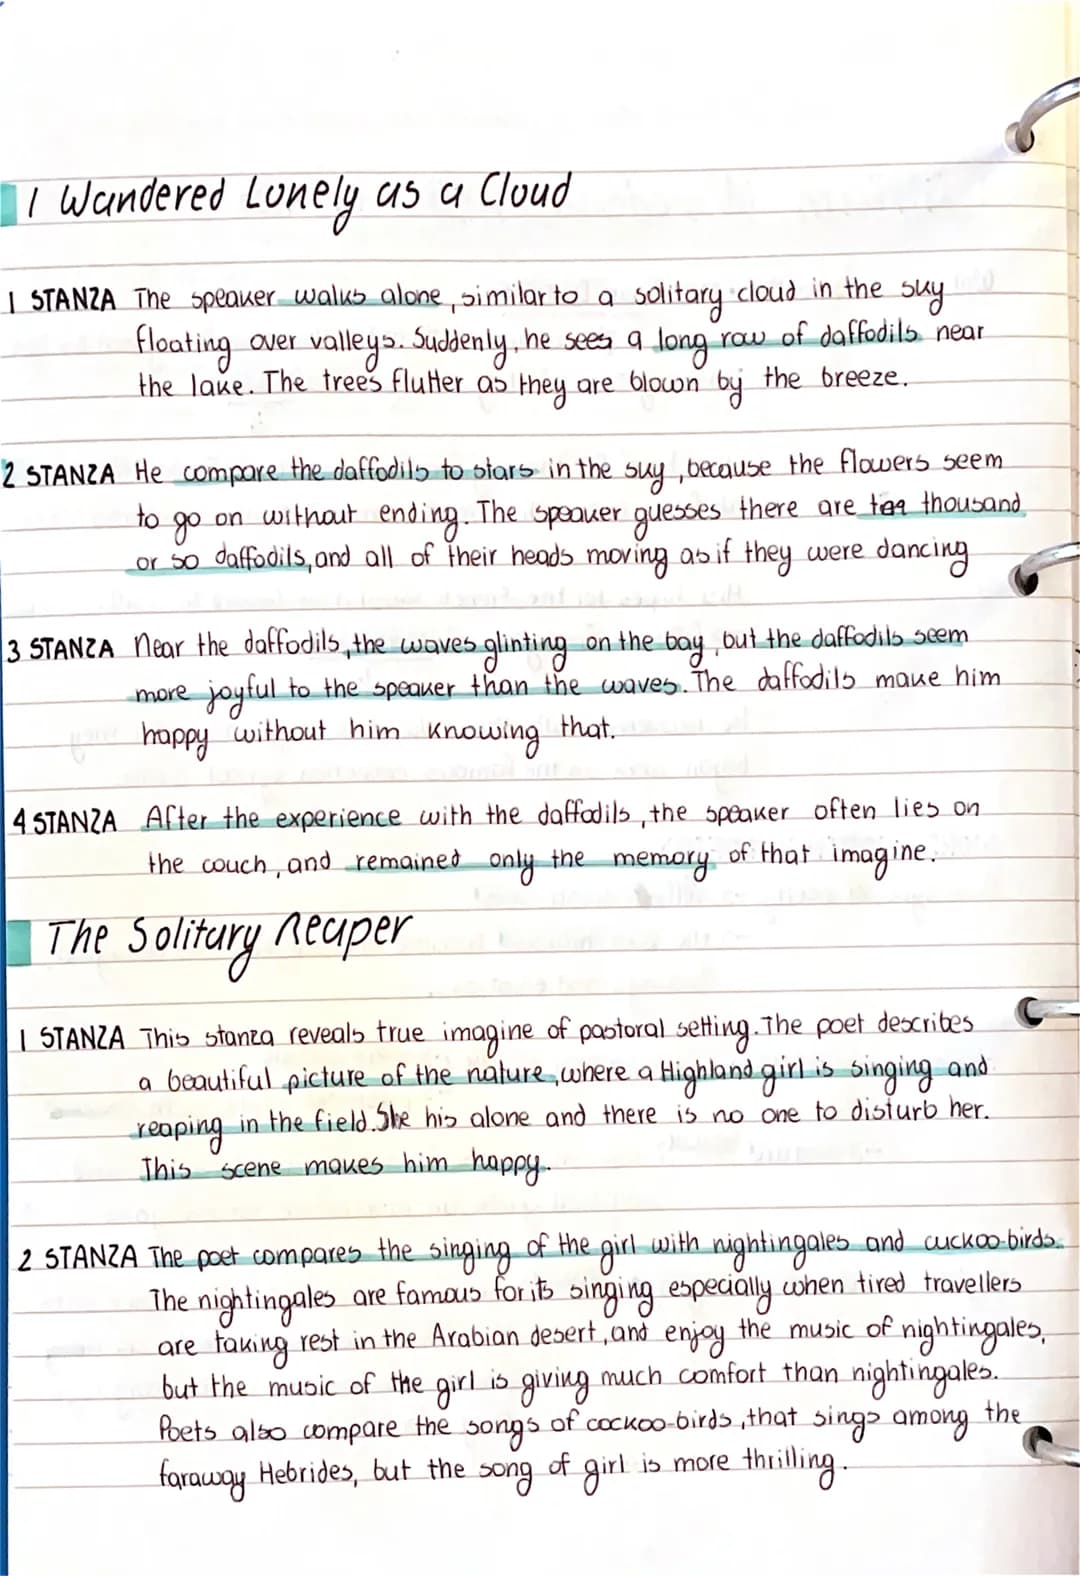 I Wandered Lonely as a Cloud
1 STANZA The speaker walks alone, similar to a solitary cloud in the sky
floating over valleys. Suddenly, he sees a long row of daffodils near
the lake. The trees flutter as they are blown by the breeze.
2 STANZA He compare the daffodils to stars in the sky, because the flowers seem
to go on without ending. The speaker guesses there are ten thousand
or so daffodils, and all of their heads moving as if they were dancing
3 STANZA Near the daffodils, the waves glinting on the bay, but the daffodils seem
more joyful to the speaker than the waves. The daffodils make him
happy without him knowing that.
4 STANZA After the experience with the daffodils, the speaker often lies on
the couch, and remained only the memory of that imagine.
The Solitary Reaper
1 STANZA This stanza reveals true imagine of pastoral setting. The poet describes
a beautiful picture of the nature, where a Highland girl is singing and
reaping in the field. She his alone and there is no one to disturb her.
This scene makes him happy.
2 STANZA The poet compares the singing of the girl with nightingales and cuckoo-birds.
The nightingales are famous for its singing especially when tired travellers
are taking rest in the Arabian desert, and enjoy the music of nightingales,
but the music of the girl is giving much comfort than nightingales.
Poets also compare the songs of cockoo-birds, that sings among the
faraway Hebrides, but the song of girl is more thrilling.